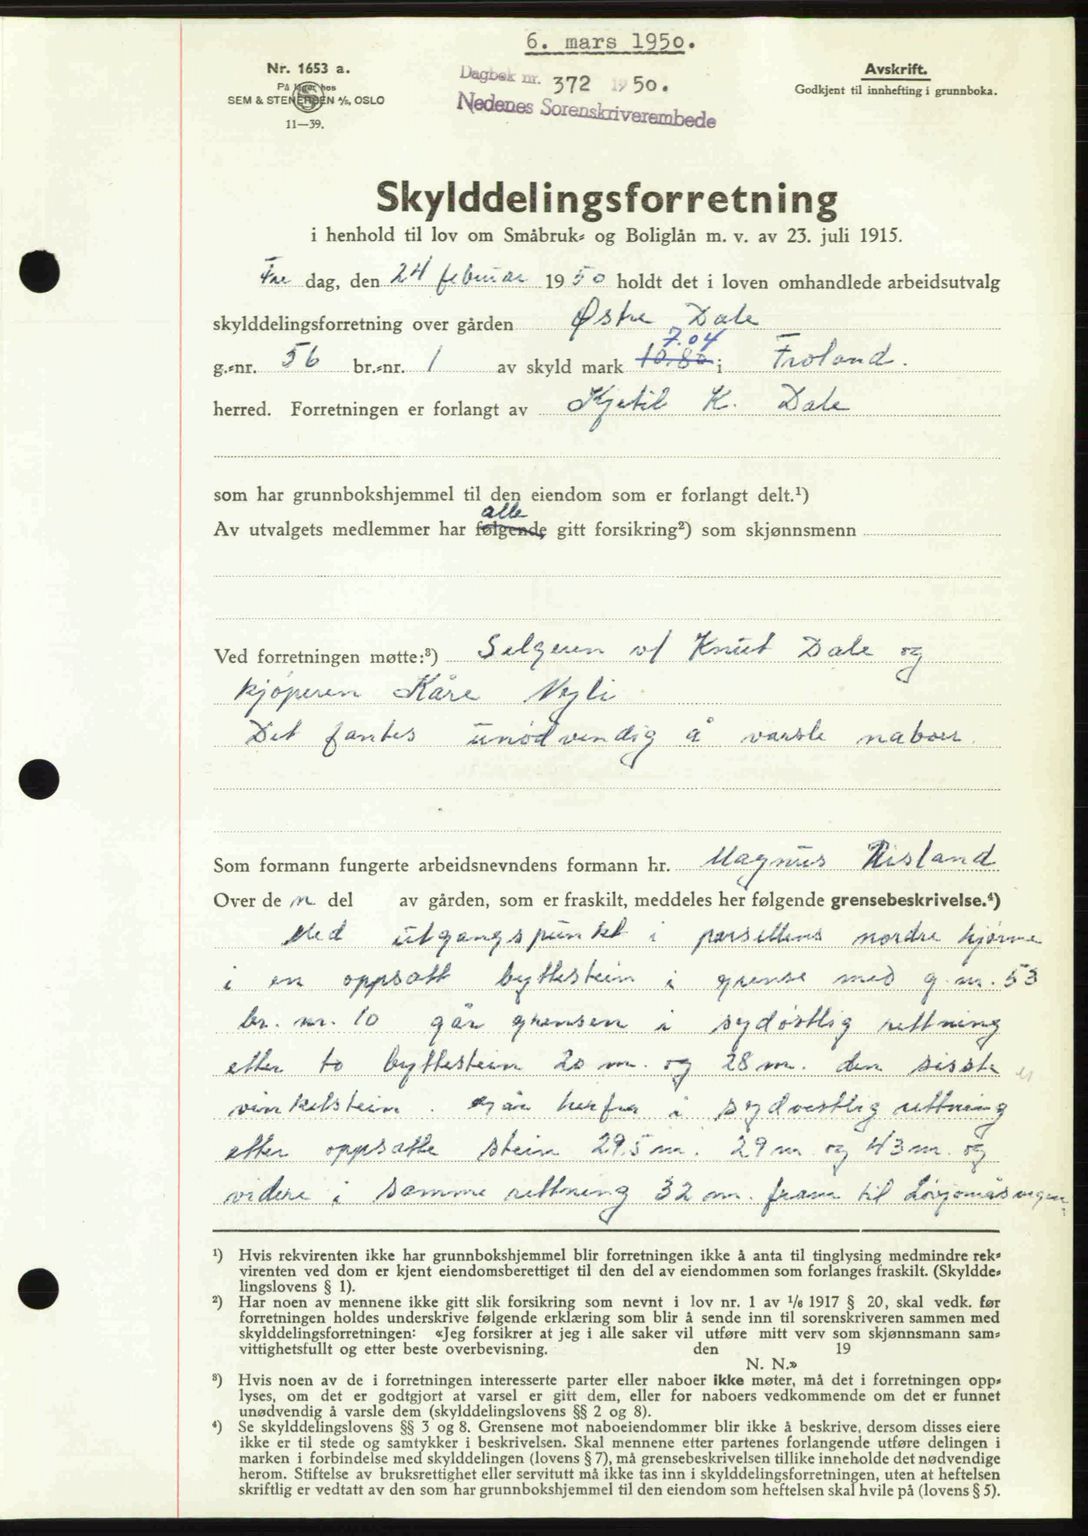 6. mars 1950.
Nr. 1653 a.
På lager hos
SEM & STENERSEN A/S, OSLO
11—39.
Dagbok nr. 372 1950.
Nedenes Sorenskriverembede
Avskrift.
Godkjent til innhefting i grunnboka.
Skylddelingsforretning
i henhold til lov om Småbruk- og Boliglån m. v. av 23. juli 1915.
Fre dag, den 24 februar 1950 holdt det i loven omhandlede arbeidsutvalg
skylddelingsforretning over gården Østre Dale
7.04
g.-nr. 56 br.-nr. 1 av skyld mark 10.80 i Froland.
herred. Forretningen er forlangt av Kjetil K. Dale
som har grunnbokshjemmel til den eiendom som er forlangt delt.¹)
alle
Av utvalgets medlemmer har følgende gitt forsikring²) som skjønnsmenn
Ved forretningen møtte:³) Selgeren v/ Knut Dale og
kjøperen Kåre Vejli
Det fantes unødvendig å varsle naboer.
Som formann fungerte arbeidsnevndens formann hr. Magnus Risland
Over de n del av gården, som er fraskilt, meddeles her følgende grensebeskrivelse.⁴)
Med utgangspunkt i parsellens nordre hjørne
i en oppsatt byttestein i grense med g.nr. 53
br. nr. 10 går grensen i sydøstlig rettning
etter to byttestein 20 m. og 28 m. den sisste er
vinkelstein. går herfra i sydvestlig rettning
etter oppsatte stein 29.5 m. 29 m og 43 m. og
videre i samme rettning 32 m. fram til
¹) Hvis rekvirenten ikke har grunnbokshjemmel blir forretningen ikke å anta til tinglysing medmindre rek-
virenten ved dom er kjent eiendomsberettiget til den del av eiendommen som forlanges fraskilt. (Skyldde-
lingslovens § 1).
²) Har noen av mennene ikke gitt slik forsikring som nevnt i lov nr. 1 av 1/6 1917 § 20, skal vedk. før
forretningen holdes underskrive følgende erklæring som blir å sende inn til sorenskriveren sammen med
skylddelingsforretningen: «Jeg forsikrer at jeg i alle saker vil utføre mitt verv som skjønnsmann sam-
vittighetsfullt og etter beste overbevisning. den 19
N. N.»
³) Hvis noen av de i forretningen interesserte parter eller naboer ikke møter, må det i forretningen opp-
lyses, om det er godtgjort at varsel er gitt dem, eller for naboers vedkommende om det er funnet
unødvendig å varsle dem (skylddelingslovens §§ 2 og 8).
⁴) Se skylddelingslovens §§ 3 og 8. Grensene mot naboeiendommer blir ikke å beskrive, dersom disses eiere
ikke er til stede og samtykker i beskrivelsen. Skal mennene etter partenes forlangende utføre delingen i
marken i forbindelse med skylddelingen (lovens § 7), må grensebeskrivelsen tillike inneholde det nødvendige
herom. Stiftelse av bruksrettighet eller servitutt må ikke tas inn i skylddelingsforretningen, uten at heftelsen
skriftlig er vedtatt av den som har grunnbokshjemmel til den eiendom som heftelsen skal hvile på (lovens § 5).